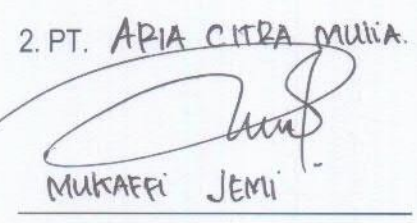 2. PT. ARIA CITRA MULIA.
MUKAFFi JEMi